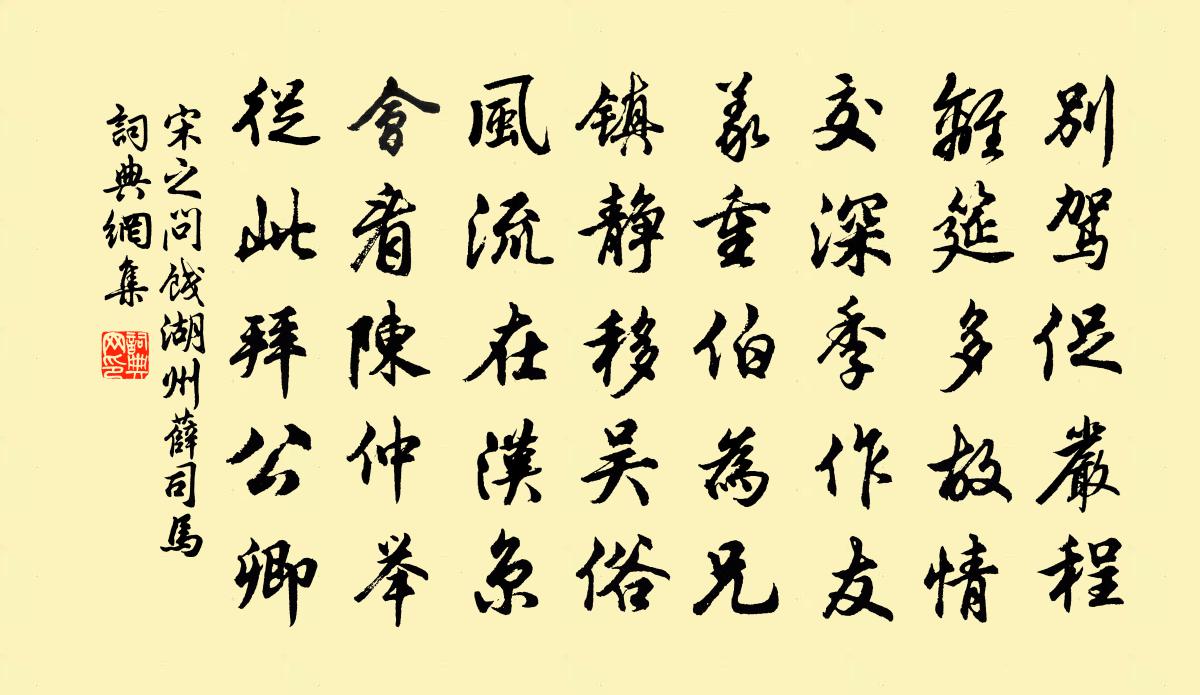 別駕促嚴程
離筵多故情
交深季作友
義重伯為兄
鎮静移吴俗
風流在漢京
會看陳仲举
從此拜公卿
宋之问餞湖州薛司馬
詞典網集
詞典网印